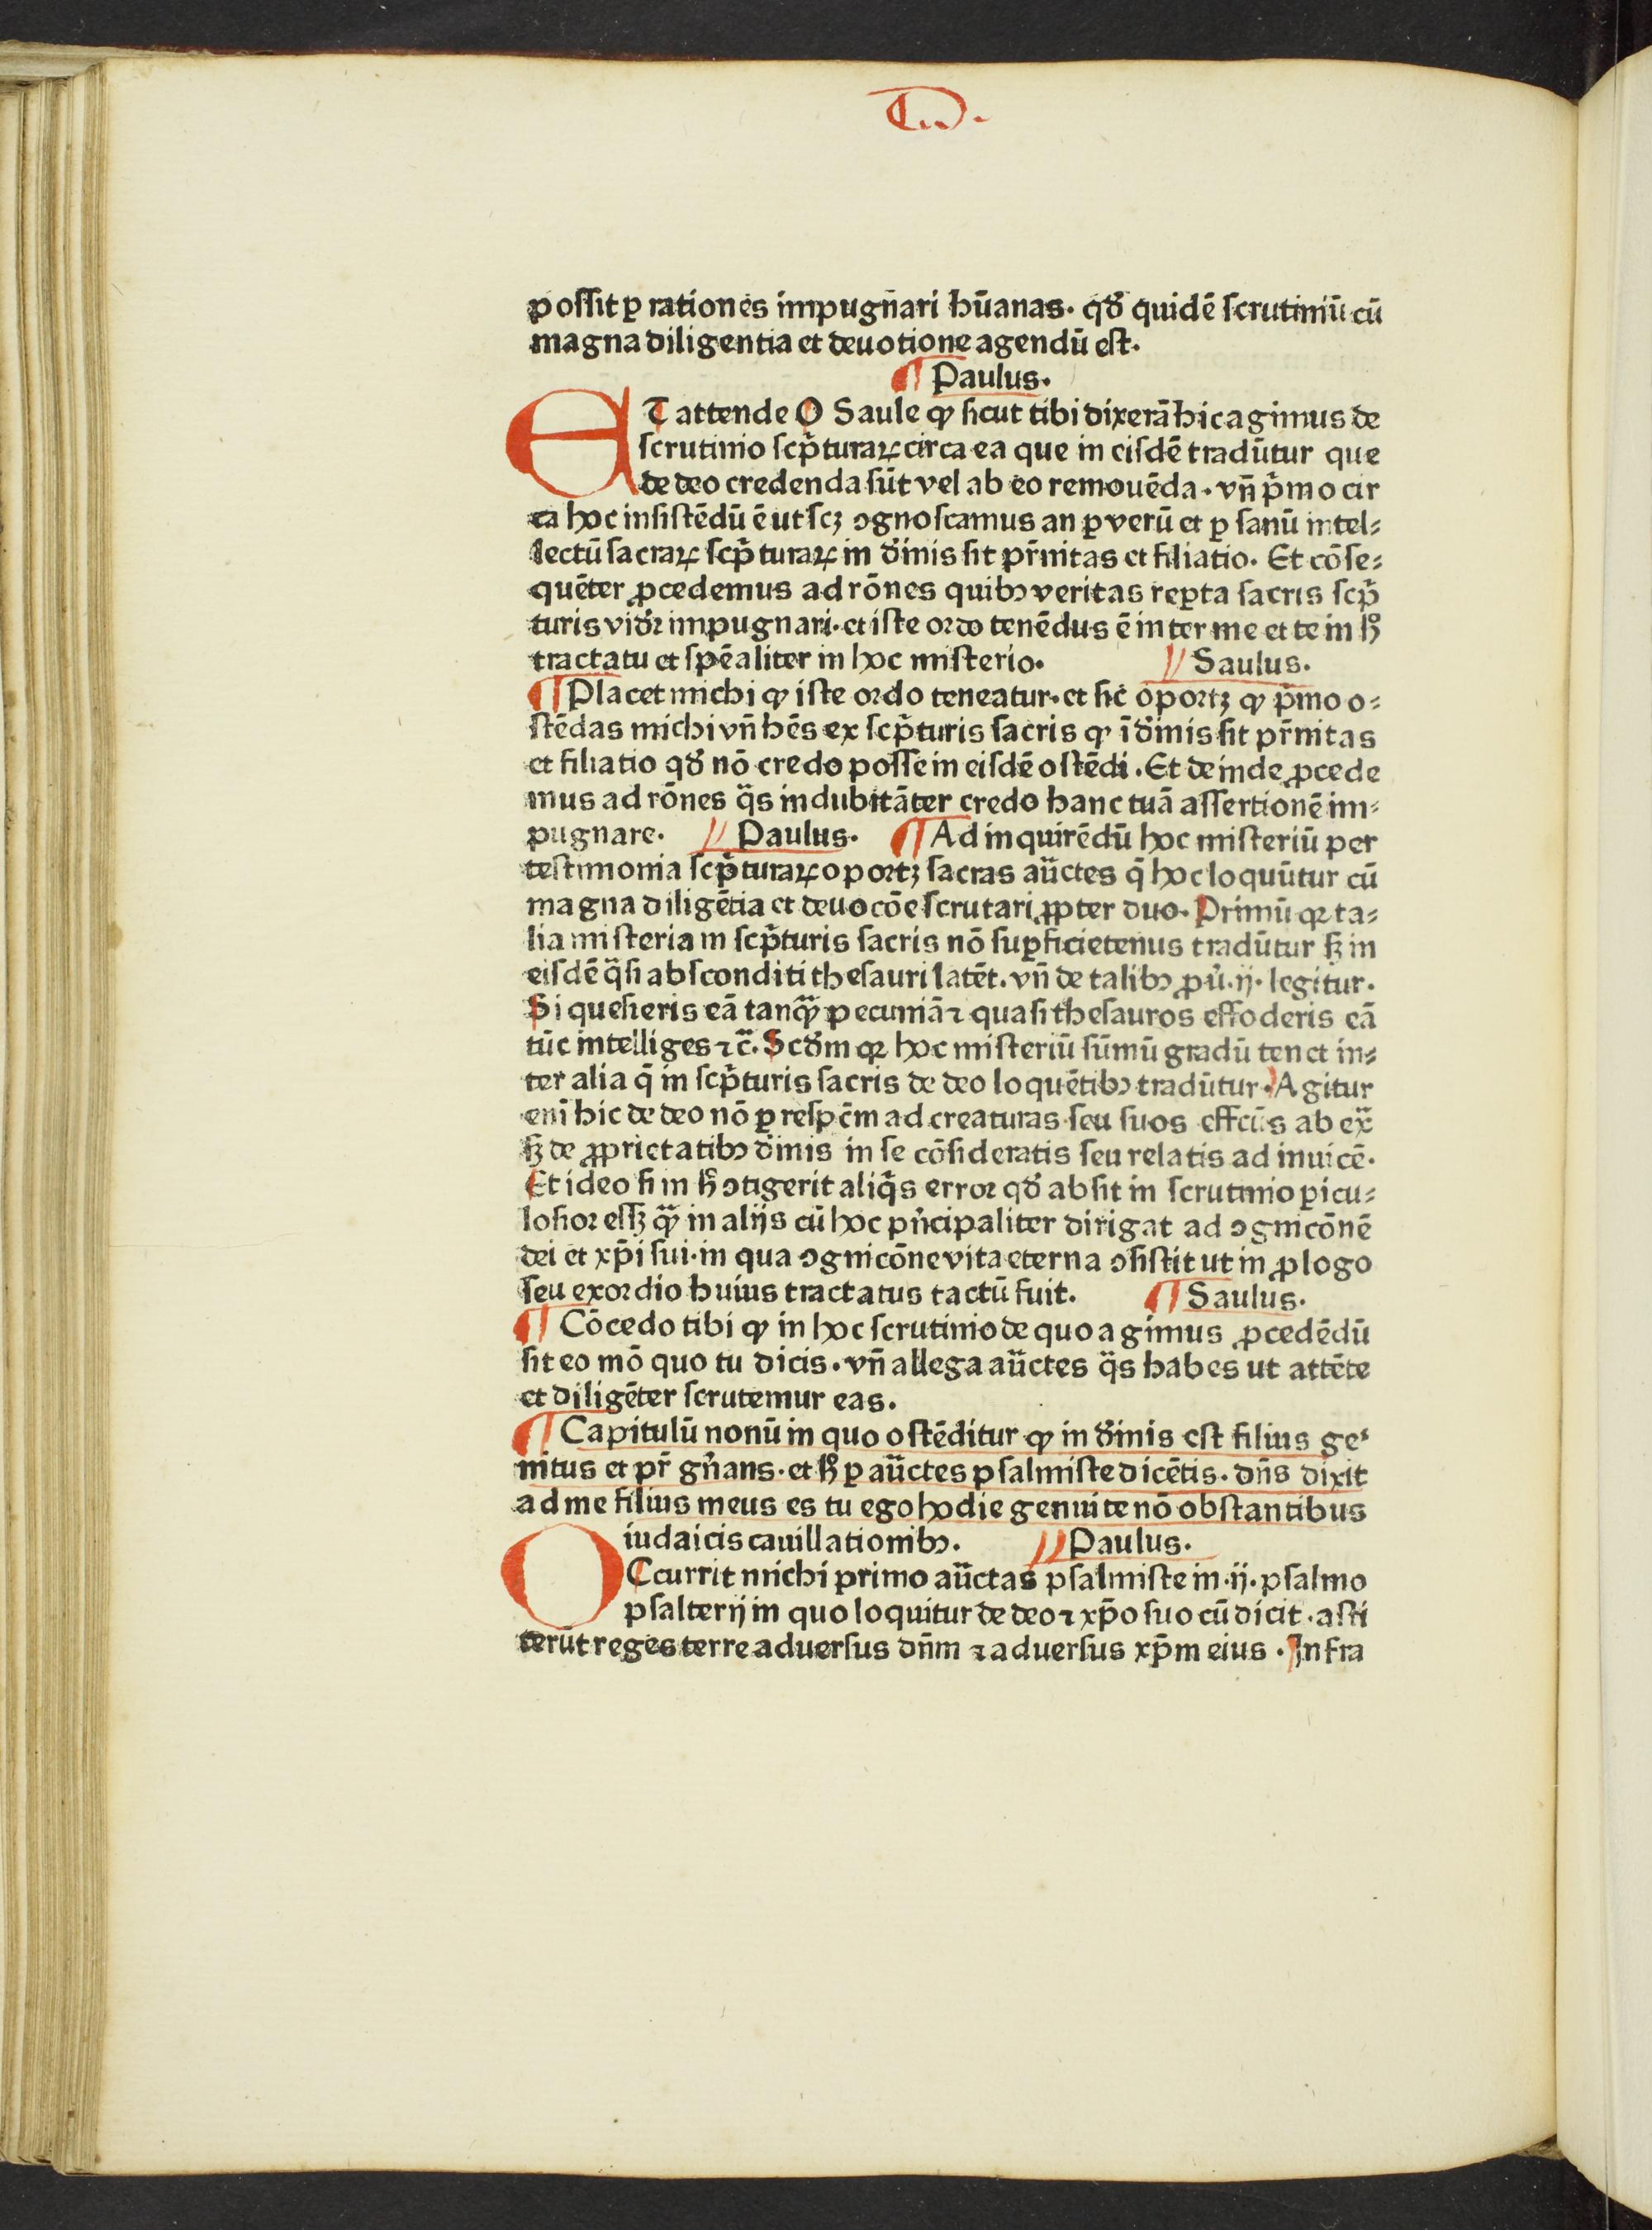 possit ꝑ rationes impugn̄ari hūanas. qđ quidē scrutiniū cū
magna diligentia et deuotione agendū est.
¶ Paulus.
ET attende O Saule ꝙ sicut tibi dixerā hic agimus de
scrutinio sc̄pturaꝝ circa ea que in eisdē tradūtur que
de deo credenda sūt vel ab eo remouēda. vn̄ p̄mo cir
ca hoc insistēdū ē ut scꝫ ꝯgnoscamus an ꝑ verū et ꝑ sanū intel⸗
lectū sacraꝝ sc̄pturaꝝ in diͦnis sit pr̄nitas et filiatio. Et cōse⸗
quēter ꝓcedemus ad rōnes quibꝰ veritas reꝑta sacris sc̄p
turis vidr̄ impugnari. et iste ordo tenēdus ē inter me et te in hͦ
tractatu et spēaliter in hoc misterio. ¶ Saulus.
¶ Placet michi ꝙ iste ordo teneatur. et sic̄ oportꝫ ꝙ p̄mo o⸗
stēdas michi vn̄ hēs ex sc̄pturis sacris ꝙ ī diͦnis sit pr̄nitas
et filiatio qđ nō credo posse in eisdē ostēdi. Et deinde ꝓcede
mus ad rōnes q̄s indubitāter credo hanc tuā assertionē im⸗
pugnare. ¶ Paulus. ¶ Ad inquirēdū hoc misteriū per
testimonia sc̄pturaꝝ oportꝫ sacras auc̄tes q̄ hoc loquūtur cū
magna diligētia et deuocōe scrutari ꝓpter duo. Primū qꝛ ta⸗
lia misteria in sc̄pturis sacris nō suꝑficietenus tradūtur sꝫ in
eisdē q̄si absconditi thesauri latēt. vn̄ de talibꝰ ꝓu̇. ij. legitur.
Si quesieris eā tanꝗ̄ pecuniā ⁊ quasi thesauros effoderis eā
tūc intelliges ⁊c̄. Scđm qꝛ hoc misteriū sūmū gradū tenet in⸗
ter alia q̄ in sc̄pturis sacris de deo loquētibꝰ tradūtur. Agitur
eni hic de deo nō ꝑ respc̄m ad creaturas seu suos effcūs ab ex̄
sꝫ de ꝓprietatibꝰ diͦnis in se cōsideratis seu relatis ad inuicē.
Et ideo si in hͦ ꝯtigerit aliq̄s error qđ absit in scrutinio ꝑicu⸗
losior essꝫ ꝗ̄ in alijs cū hoc pn̄cipaliter dirigat ad ꝯgnicōnē
dei et xp̄i sui. in qua ꝯgnicōne vita eterna ꝯsistit ut in ꝓlogo
seu exordio huius tractatus tactū fuit. ¶ Saulus.
¶ Cōcedo tibi ꝙ in hoc scrutinio de quo agimus ꝓcedēdū
sit eo mō quo tu dicis. vn̄ allega auc̄tes q̄s habes ut attēte
et diligēter scrutemur eas.
¶ Capitulū nonū in quo ostēditur ꝙ in diͦnis est filius ge⸗
nitus et pr̄ gn̄ans. et hͦ ꝑ auc̄tes psalmiste dicētis. dn̄s dixit
ad me filius meus es tu ego hodie genui te nō obstantibus
iudaicis cauillationibꝰ. ¶ Paulus.
OCcurrit michi primo auc̄tas psalmiste in. ij. psalmo
psalterij in quo loquitur de deo ⁊ xp̄o suo cū dicit. asti
terūt reges terre aduersus dn̄m ⁊ aduersus xp̄m eius. Infra